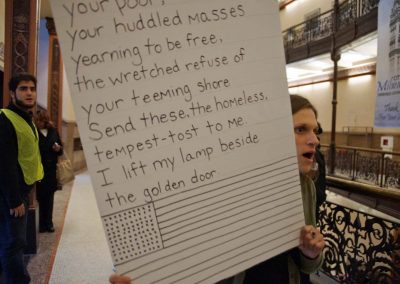 your poor,
your huddled masses
yearning to be free,
the wretched refuse of
your teeming shore
Send these, the homeless,
tempest-tost to me.
I lift my lamp beside
the golden door
Thank